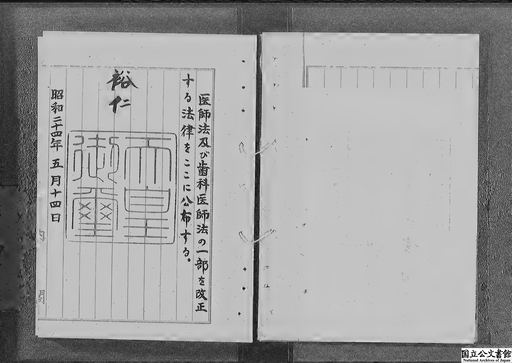 医師法及び歯科医師法の一部を改正
する法律をここに公布する。
裕仁
天皇
御璽
昭和三十四年五月十四日
国立公文書館
National Archives of Japan